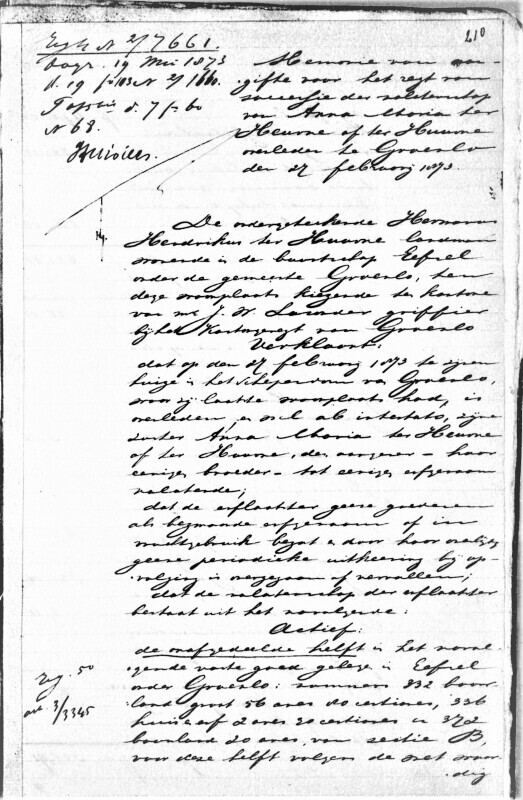 210
Regts N 2/7661.
Dagt. 19 Mei 1873
d. 19 f 103 N 2/
d. 7 f 60
N 68.
Memorie van aan-
gifte voor het regt van
successie der nalatenschap
van Anna Maria ter
Heurne of ter Huurne
overleden te Groenlo
den 27 februarij 1873.
De ondergeteekende Hermanus
Hendrikus ter Huurne landman
wonende in de buurtschap Eefsel
onder de gemeente Groenlo, ten
deze woonplaats kiezende ten kantore
van mr J. W. griffier
bij het Kantongeregt van Groenlo
Verklaart:
dat op den 27 februarij 1873 te zijnen
huize in het schependom van Groenlo,
waar zij laatste woonplaats had, is
overleden, en wel ab intestato, zijne
zuster Anna Maria ter Heurne
of ter Huurne, den aangever – haar
eenigen broeder – tot eenigen erfgenaam
nalatende;
dat de erflaatster geene goederen
als bezwaarde erfgenaam of in
vruchtgebruik bezat en door haar overlijden
geene periodieke uitkeering bij op-
volging is overgegaan of vervallen;
dat de nalatenschap der erflaatster
bestaat uit het navolgende:
Actief:
de onafgedeelde helft in het navol-
gende vaste goed gelegen in Eefsel
onder Groenlo: nummers 332 bouw-
land groot 56 ares centiares, 336
huis en erf 2 ares 20 centiares en 372
bouwland 20 ares, van sectie B,
voor deze helft volgens de met waar-
dig
reg. 50
art. 3/3345